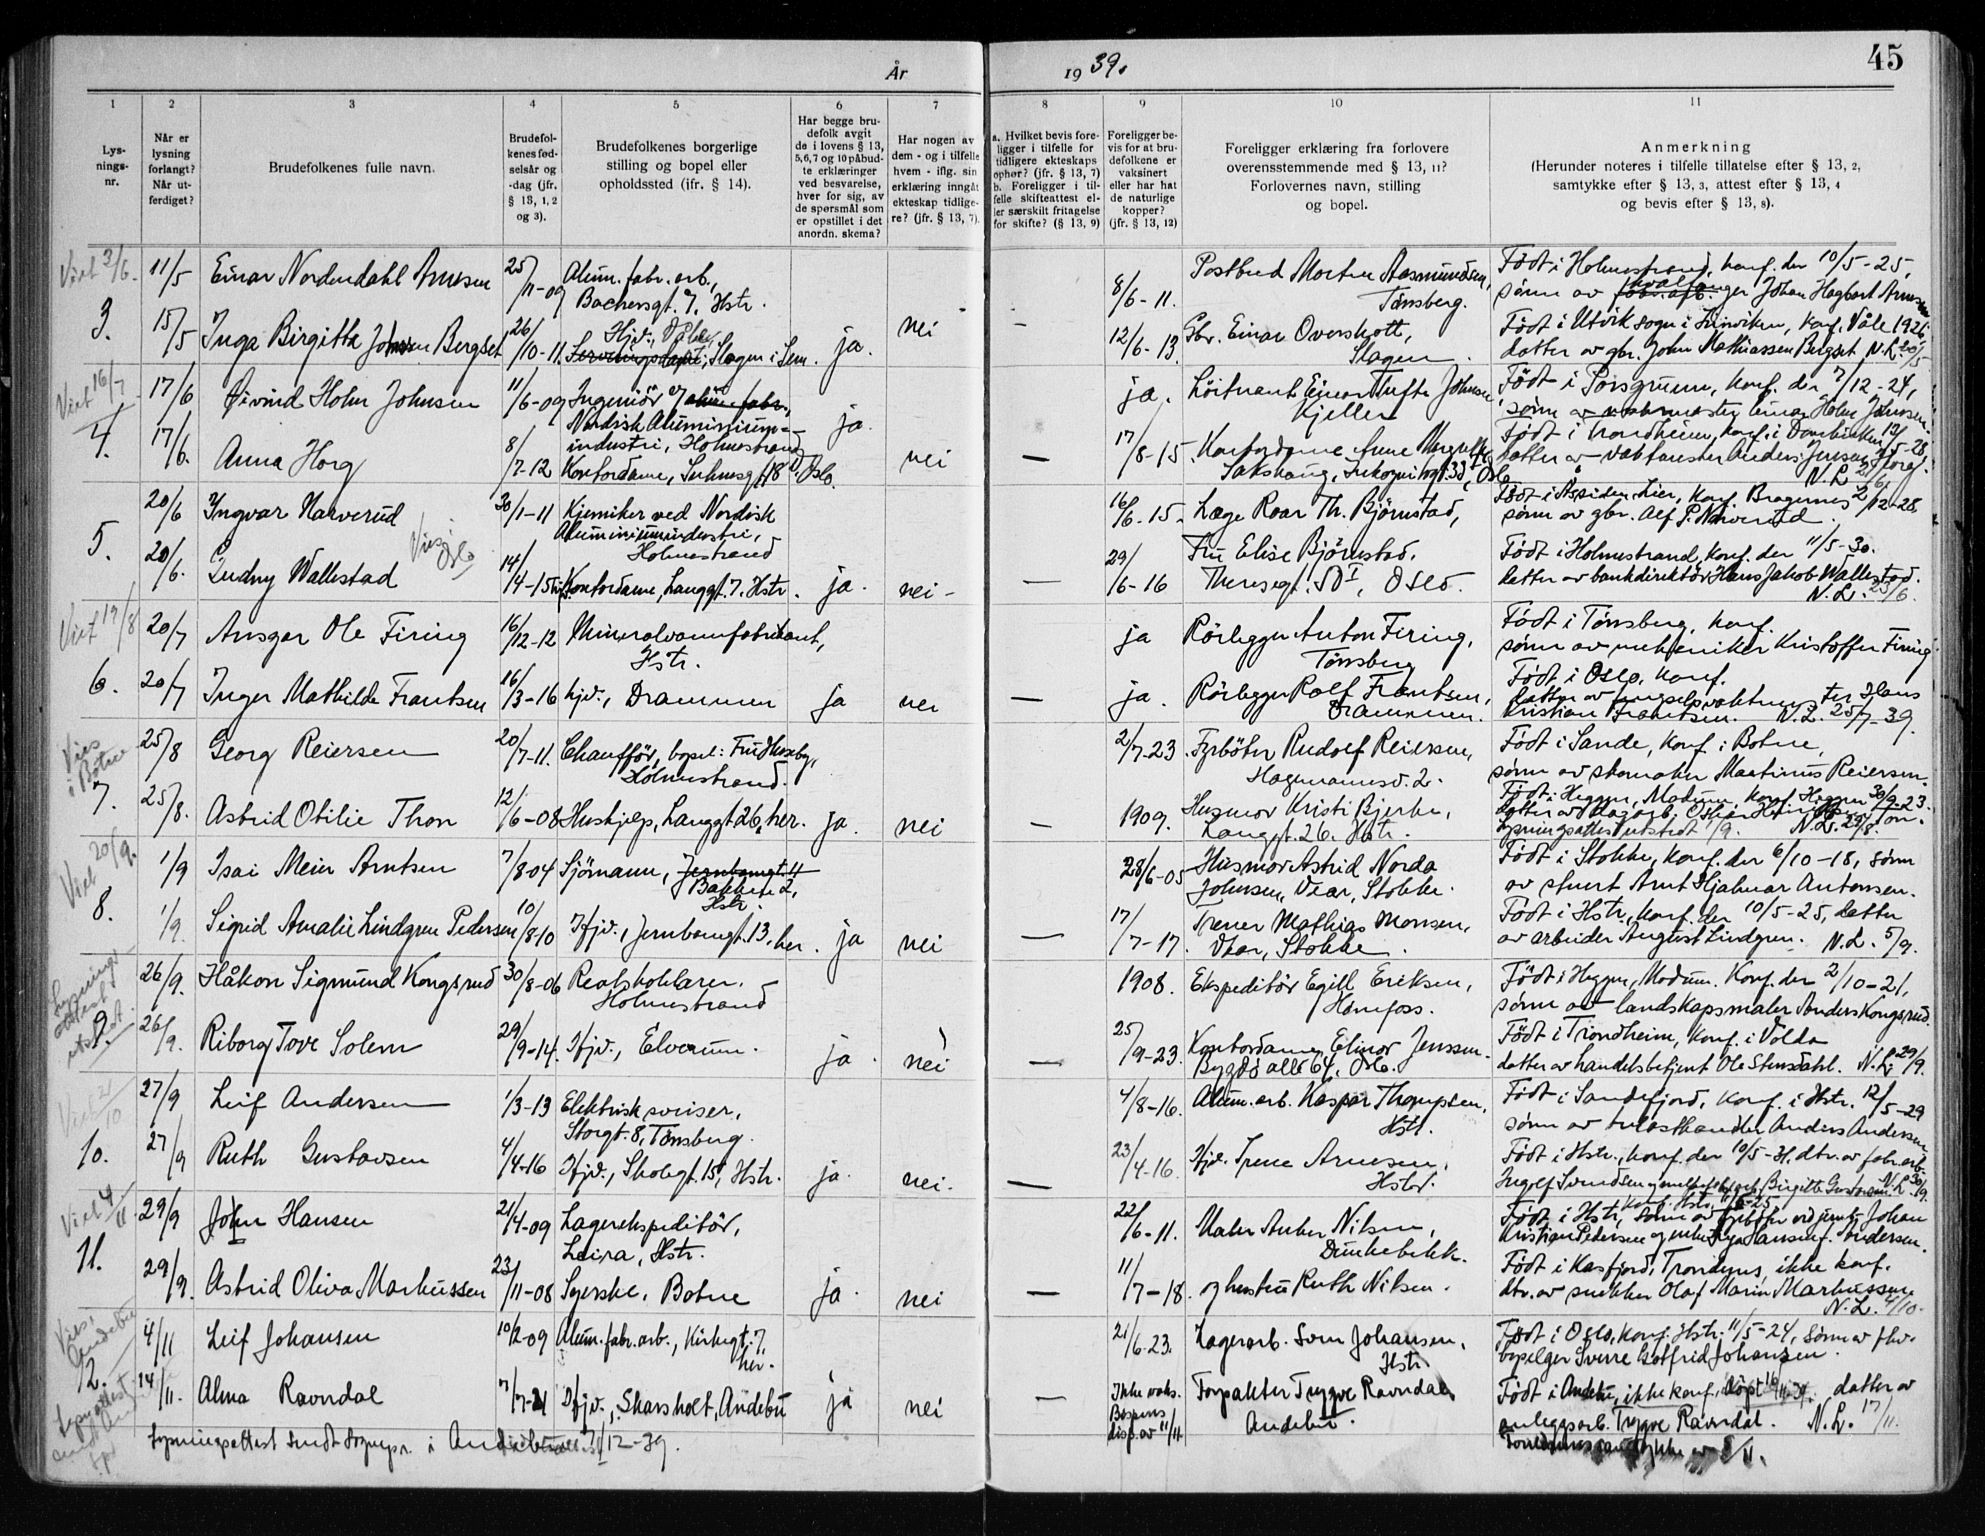 År
19 39.
45
1
Lys-
nings-
nr.
2
Når er
lysning
forlangt?
Når ut-
ferdiget?
3
Brudefolkenes fulle navn.
4
Brudefol-
kenes fød-
selsår og
-dag (jfr.
§ 13, 1, 2
og 3).
5
Brudefolkenes borgerlige
stilling og bopel eller
opholdssted (ifr. § 14).
6
Har begge bru-
defolk avgit
de i lovens § 13,
5, 6, 7 og 10 påbud-
te erklæringer
ved besvarelse,
hver for sig, av
de spørsmål som
er opstillet i det
anordn. skema?
7
Har nogen av
dem - og i tilfelle
hvem - iflg. sin
erklæring inngåt
ekteskap tidlige-
re? (jfr. § 13, 7).
8
a. Hvilket bevis fore-
ligger i tilfelle for
tidligere ekteskaps
ophør? (jfr. § 13, 7)
b. Foreligger i til-
felle skifteattest el-
ler særskilt fritagelse
for skifte? (§ 13, 9)
9
Foreligger be-
vis for at bru-
defolkene er
vaksinert
eller har hat
de naturlige
kopper?
(jfr. § 13, 12)
10
Foreligger erklæring fra forlovere
overensstemmende med § 13, 11?
Forlovernes navn, stilling
og bopel.
11
Anmerkning
(Herunder noteres i tilfelle tillatelse efter § 13, 2,
samtykke efter § 13, 3, attest efter § 13, 4
og bevis efter § 13, 8).
Viet 3/6.
3.
11/5 Einar Nordendahl Arnesen 25/11-09 Alum. fabr. arb.,
Bachesgt. 7. Hstr.
8/6-11. Postbud Morten Aasmundsen,
Tønsberg.
Født i Holmestrand, konf. der 10/5-25,
sønn av hvalfanger Johan Hagbart Arnesen
15/5 Inga Birgitta Johnsen Bergset 26/10-11. Hjv.,
Slagen i Sem. ja. nei -
12/6-13. Gbr. Einar Overskott,
Slagen.
Født i Utvik sogn i Innviken, Konf. Våle 1926,
datter av gbr. John Mathiassen Bergset N.L. 20/5
Viet 16/7
4.
17/6 Øivind Holm Johnsen 11/6-09 Ingeniør
Nordisk Aluminium-
industri, Holmestrand ja.
ja. Løitnant Einar Tufte Johnsen
Kjeller
Født i Porsgrunn, konf. der 7/12-24,
sønn av Einar Holm Johnsen.
17/6. Anna Horg 8/7-12 Kontordame, Suhmsgt. 18, Oslo. nei —
17/8-15. Kontordame Anne Margrethe
Født i Trondheim, konf. i Domkirken 13/5-28
datter av Anders Jensen Horg.
N.L.
5.
20/6 Ingvar Narverud 30/1-11 Kjemiker ved Nordisk
Aluminiumindustri,
Holmestrand
16/6-15. Læge Roar Th. Bjørnstad,
Født i Åssiden, Lier, Konf. Bragernes 2/12-28
sønn av gbr. Alf P. Narverud.
Vies Oslo
20/6. Gudny Wallestad 14/4-15 Kontordame, Langgt. 7. Hstr. ja. nei - —
29/6-16 Fru Elise Bjørnstad.
Theresegt. , Oslo.
Født i Holmestrand, Konf. der 11/5-30.
datter av bankdirektør Hans Jakob Wallestad.
N.L. 23/6.
Viet 19/8
6.
20/7 Ansgar Ole Firing 16/12-12 Mineralvannfabrikant,
Hstr.
ja Rørlegger Anton Firing,
Tønsberg
Født i Tønsberg, konf.
sønn av mekaniker Kristoffer Firing
20/7 Inger Mathilde Frantsen 16/3-16 hjv., Drammen ja nei —
ja. Rørlegger Rolf Frantsen,
Drammen.
Født i Oslo, konf.
datter av fengselsvaktmester Hans
Kristian Frantsen. N.L. 25/7-39.
Vies i Botne
7.
25/8 Georg Reiersen 20/7-11. Chauffør, bopel: Fru Huseby,
Holmestrand.
2/7-23 Fyrbøter Rudolf Reiersen,
Hagemannsv. 2.
Født i Sande, Konf. i Botne,
sønn av skomaker Martinus Reiersen.
25/8. Astrid Otilie Thon 12/6-08 Hushjelp, Langgt 26, her. ja. nei —
1909. Husmor Kristi Bjerke,
Langgt. 26. Hstr.
Født i Heggen, Modum, Konf. Heggen 30/9-23.
lysningsattest utstedt 1/9. N.L. 29/8.
Viet 20/9.
8.
1/9 Isai Meier Arntsen 7/8-04 Sjømann, Jernbanegt. 11
Bakken 2,
Hstr.
28/6-05 Husmor Astrid Norda
Johnsen, Vear, Stokke.
Født i Stokke, Konf. der 6/10-18, sønn
av stuert Arnt Hjalmar Antonsen.
1/9. Sigrid Amalie Lindgren Pedersen 10/8-10 Hjv., Jernbanegt. 13, her. ja nei —
17/7-17. Mathias Monsen,
Vear, Stokke.
Født i Hstr., Konf. der 10/5-25, datter
av arbeider August Lindgren. N.L. 5/9.
Lysnings-
attest
utstedt.
9.
26/9. Håkon Sigmund Kongsrud 30/8-06 Realskolelærer,
Holmestrand
1908. Ekspeditør Egill Eriksen,
Hønefoss.
Født i Heggen, Modum. Konf. der 2/10-21,
sønn av landskapsmaler Anders Kongsrud.
26/9. Riborg Tove Solem 29/9-14. Hjv., Elverum. ja. nei —
25/9-23. Kontordame Elinor Jenssen.
Bygdø allé 64, Oslo.
Født i Trondheim, Konf. i Volda
datter av handelsbetjent Ole Stensdahl. N.L. 29/9.
Viet 21/10
10.
27/9 Leif Andersen 1/3-13 Elektrisk sveiser,
Storgt. 8, Tønsberg.
4/8-16. Alum. arb. Kaspar Thompsen,
Hstr.
Født i Sandefjord, Konf. i Hstr. 12/5-29
sønn av trelasthandler Anders Andersen
27/9 Ruth Gustavsen 4/4-16 Hjv., Skolegt. 15, Hstr. ja. nei. —
23/4-16. Hjv. Irene Arnesen,
Hstr.
Født i Hstr., konf. der 10/5-31, dtr. av fabr. arb.
Ingolf Svendsen og Birgitte Gustavsen. N.L. 30/9.
Viet 4/11
11.
29/9 John Hansen 21/4-09 Lagerekspeditør,
Leira, Hstr.
22/6-11. Maler Anker Nilsen,
Dunkebekk.
Konf. Hstr. 11/5-25
Født i Hstr., sønn av Johan
Kristian Pedersen og Hansine Andersen.
29/9. Astrid Oliva Markussen 23/11-08 Syerske, Botne ja. nei —
11/7-18. og hustru Ruth Nilsen.
Født i Kasfjord, Trondenes, ikke konf.
dtr. av snekker Olaf Marin Markussen
N.L. 4/10.
Vies i Andebu
12.
4/11 Leif Johansen 10/2-09 Alum. fabr. arb., Kirkegt. 7,
her.
21/6-23. Lagerarb. Sven Johansen,
Hstr.
Født i Oslo, Konf. Hstr. 11/5-24, sønn av
Sverre Gotfrid Johansen.
14/11. Alma Ravndal 7/7-21 Hjv., Skarsholt, Andebu ja nei —
Ikke vaks.
Bispens
disp. av 11/11 Forpakter Trygve Ravndal,
Andebu.
Født i Andebu, ikke konf., døpt datter av
anleggsarb. Trygve Ravndal. N.L. 17/11.
lysningsattest sendt sognepr. i Andebu 7/12-39.